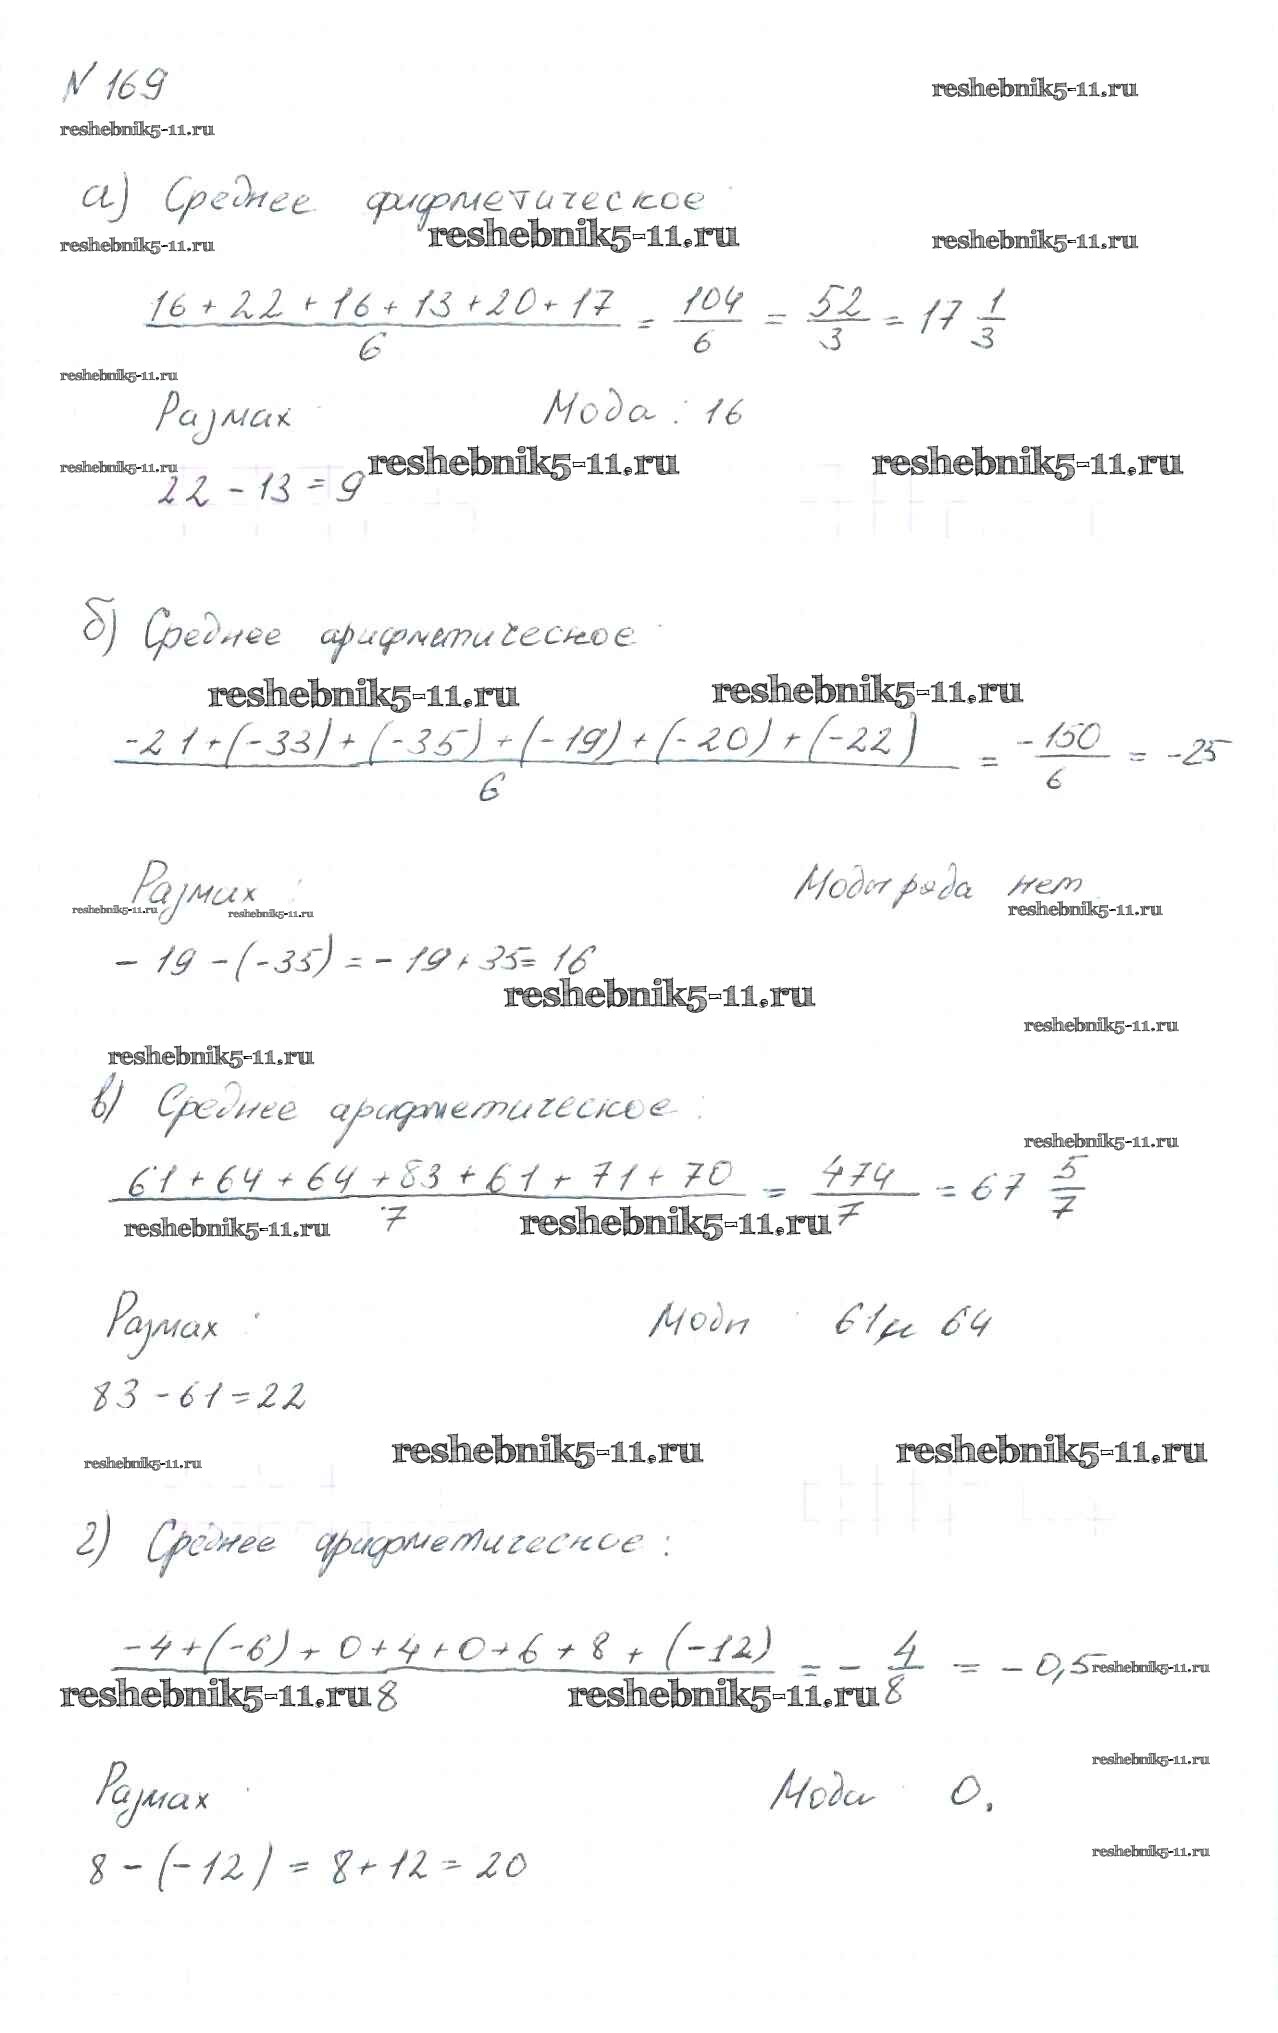 N 169
reshebnik5-11.ru
reshebnik5-11.ru
а) Среднее арифметическое
reshebnik5-11.ru reshebnik5-11.ru reshebnik5-11.ru
16 + 22 + 16 + 13 + 20 + 17 / 6 = 104 / 6 = 52 / 3 = 17 1/3
reshebnik5-11.ru
Размах Мода: 16
reshebnik5-11.ru reshebnik5-11.ru reshebnik5-11.ru
22 - 13 = 9
б) Среднее арифметическое
reshebnik5-11.ru reshebnik5-11.ru
-21 + (-33) + (-35) + (-19) + (-20) + (-22) / 6 = -150 / 6 = -25
Размах: Моды ряда нет
reshebnik5-11.ru reshebnik5-11.ru reshebnik5-11.ru
- 19 - (-35) = - 19 + 35 = 16
reshebnik5-11.ru
reshebnik5-11.ru
reshebnik5-11.ru
в) Среднее арифметическое:
reshebnik5-11.ru
61 + 64 + 64 + 83 + 61 + 71 + 70 / 7 = 474 / 7 = 67 5/7
reshebnik5-11.ru reshebnik5-11.ru
Размах: Моды 61 и 64
83 - 61 = 22
reshebnik5-11.ru reshebnik5-11.ru reshebnik5-11.ru
г) Среднее арифметическое:
-4 + (-6) + 0 + 4 + 0 + 6 + 8 + (-12) / 8 = - 4 / 8 = - 0,5
reshebnik5-11.ru
reshebnik5-11.ru reshebnik5-11.ru
reshebnik5-11.ru
Размах: Мода 0.
8 - (-12) = 8 + 12 = 20
reshebnik5-11.ru